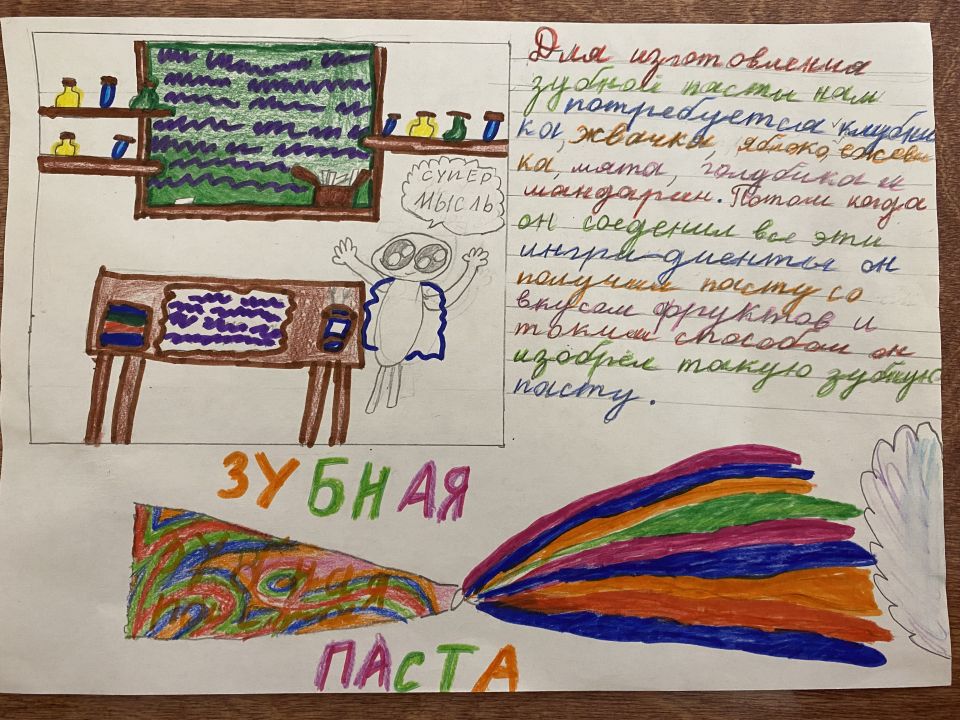 СУПЕР
МЫСЛЬ
Для изготовления
зубной пасты нам
потребуется клубни
ка, жвачка, яблоко, ежеви
ка, мята, голубика и
мандарин. Потом когда
он соеденил все эти
ингри-диенты он
получил пасту со
вкусом фруктов и
таким способом он
изобрёл такую зубную
пасту.
ЗУБНАЯ
зубная
ПАСТА